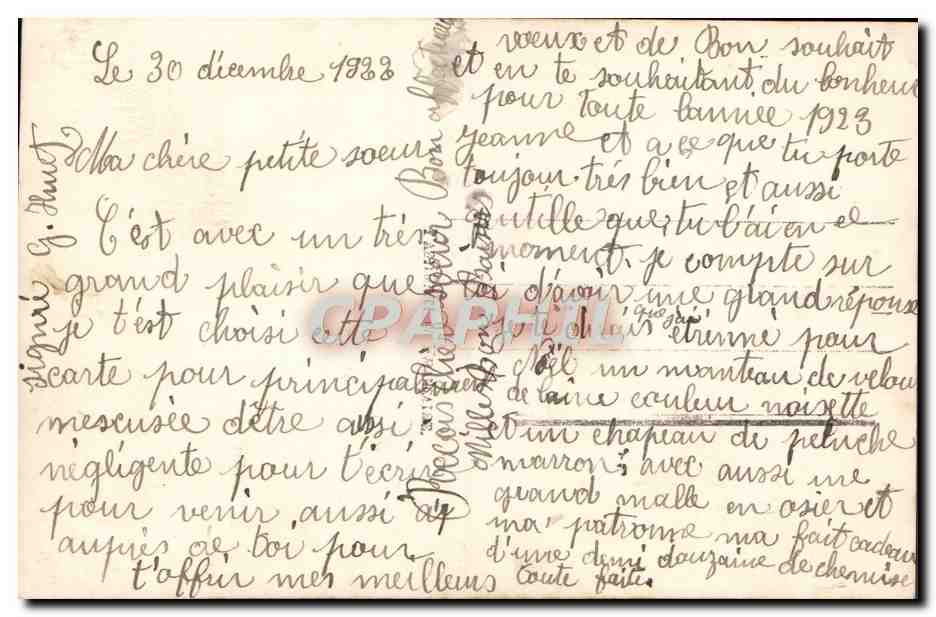 Le 30 décembre 1922
Ma chère petite soeur Jeanne
C'est avec un très
grand plaisir que
je t'est choisi cette
carte pour principalement
mescusée d'être aussi
négligente pour t'écrire
pour venir aussi
auprès de toi pour
t'offrir mes meilleurs
voeux et de Bon souhait
et en te souhaitant du bonheur
pour toute lannée 1923
et a ce que tu porte
toujour très bien et aussi
utille que tu l'ai en ce
moment. je compte sur
toi d'avoir une grand réponse
je te dirais que j'ai étrénné pour
Noël un manteau de velour
de laine couleur noisette
et un chapeau de peluche
marron, avec aussi une
grand malle en osier et
ma patronne ma fait cadeau
d'une demi douzaine de chemise
toute faite.
Mille Bon Baisers
signé G. Huet
CPAPHIL